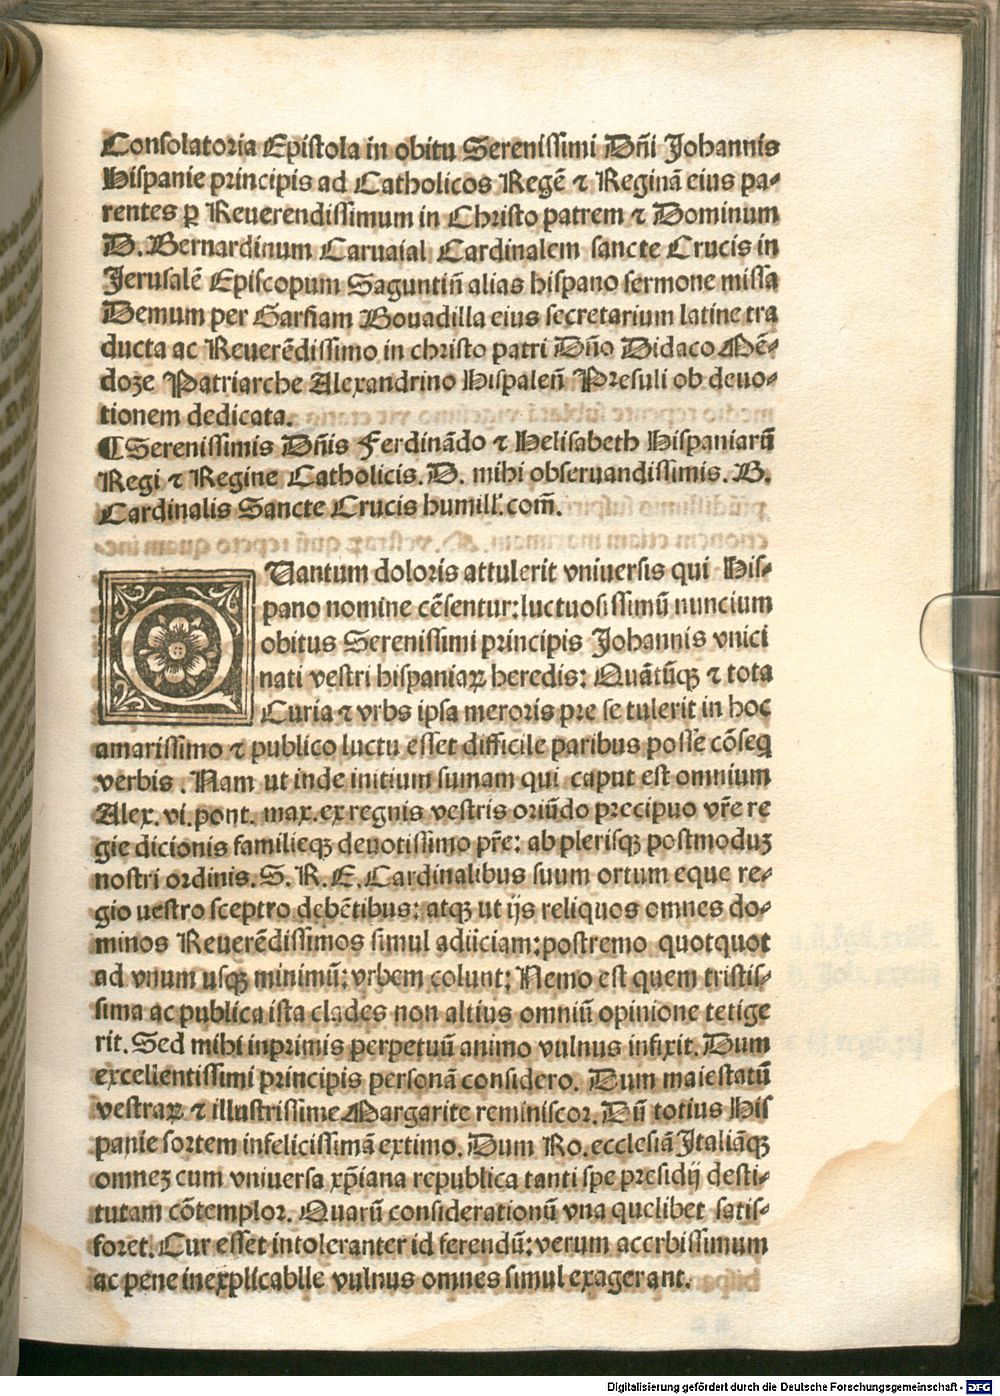 Consolatoria Epistola in obitu Serenissimi Dñi Johannis
Hispanie principis ad Catholicos Regē ⁊ Reginā eius pa-
rentes ꝑ Reuerendissimum in Christo patrem ⁊ Dominum
D. Bernardinum Caruaial Cardinalem sancte Crucis in
Jerusalē Episcopum Saguntiñ alias hispano sermone missa
Demum per Garsiam Bouadilla eius secretarium latine tra
ducta ac Reuerēdissimo in christo patri Dño Didaco Mē-
doze Patriarche Alexandrino Hispaleñ Presuli ob deuo-
tionem dedicata.
¶ Serenissimis Dñis Ferdinādo ⁊ Helisabeth Hispaniarū
Regi ⁊ Regine Catholicis. D. mihi obseruandissimis. B.
Cardinalis Sancte Crucis humill'. com̄.
QVantum doloris attulerit vniuersis qui His-
pano nomine cēsentur: luctuosissimū nuncium
obitus Serenissimi principis Johannis vnici
nati vestri hispaniaꝝ heredis: Quātūqꝫ ⁊ tota
Curia ⁊ vrbs ipsa meroris pre se tulerit in hoc
amarissimo ⁊ publico luctu esset difficile paribus posse cōseq
verbis. Nam ut inde initium sumam qui caput est omnium
Alex. vi. pont. max. ex regnis vestris oriūdo precipuo vr̄e re
gie dicionis familieqꝫ deuotissimo pr̄e: ab plerisqꝫ postmoduꝫ
nostri ordinis. S. R. E. Cardinalibus suum ortum eque re-
gio uestro sceptro debētibus: atqꝫ ut ijs reliquos omnes do-
minos Reuerēdissimos simul adiiciam: postremo quotquot
ad vnum usqꝫ minimū: vrbem colunt; Nemo est quem tristis-
sima ac publica ista clades non altius omniū opinione tetige
rit. Sed mihi inprimis perpetuū animo vulnus infixit. Dum
excelientissimi principis personā considero. Dum maiestatū
vestraꝝ ⁊ illustrissime Margarite reminiscor. Dū totius His
panie sortem infelicissimā extimo. Dum Ro. ecclesiā Italiāqꝫ
omneꝫ cum vniuersa xp̄iana republica tanti spe presidij desti-
tutam cōtemplor. Quarū considerationū vna quelibet satis-
foret. Cur esset intoleranter id ferendū: verum acerbissimum
ac pene inexplicablle vulnus omnes simul exagerant.
Digitalisierung gefördert durch die Deutsche Forschungsgemeinschaft - DFG